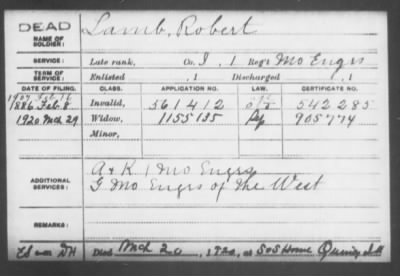 DEAD
NAME OF SOLDIER: Lamb, Robert
SERVICE: Late rank, Co. I, 1 Reg't Mo Engrs
TERM OF SERVICE: Enlisted , 1 Discharged , 1
DATE OF FILING. CLASS. APPLICATION NO. LAW. CERTIFICATE NO.
1907 Feb
1886 Feb 8 Invalid, 561412 542285
1920 Mch 29 Widow, 1155135 905774
Minor,
ADDITIONAL SERVICES: A + K. 1 Mo Engrs
G Mo Engrs of the West
REMARKS:
Died Mch 20, 1920, at S.o.S Home Quincy Ill